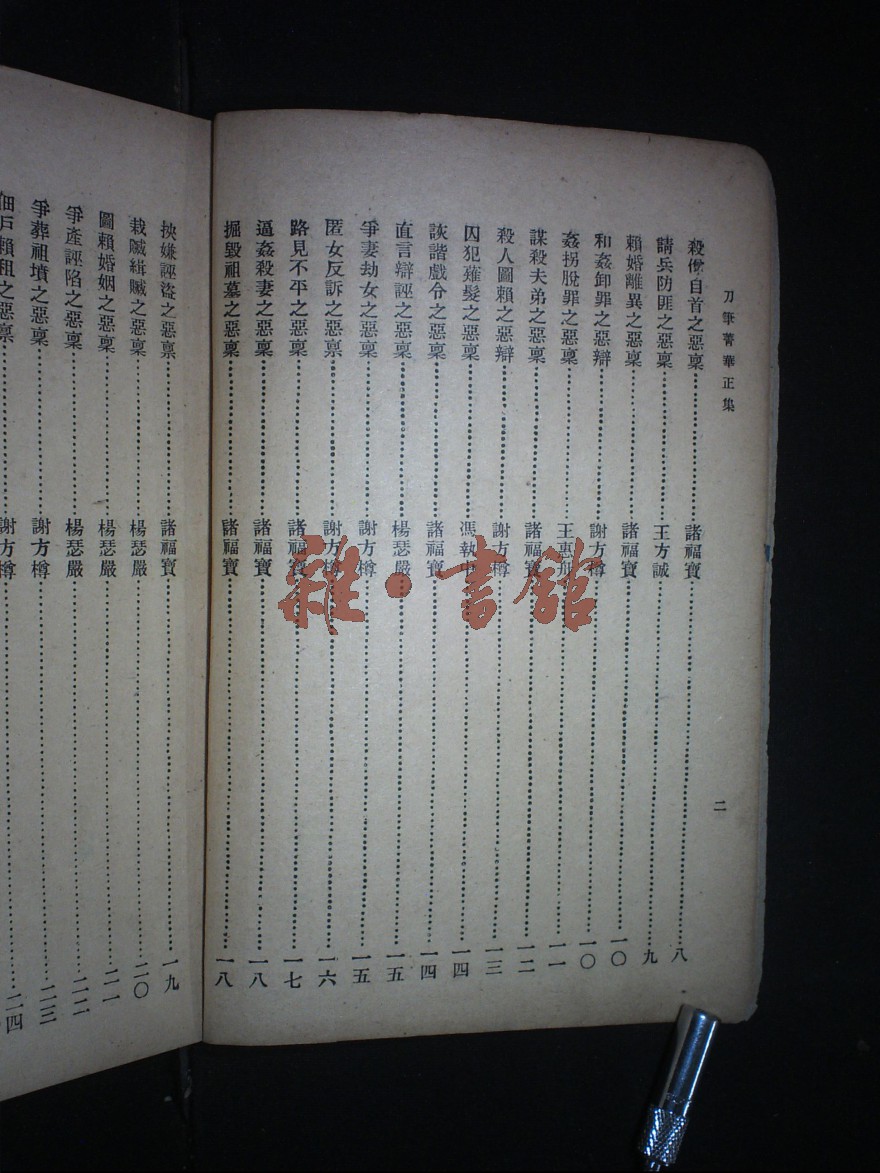 刀筆菁華正集
二
殺僧自首之惡稟 諸福寶 八
請兵防匪之惡稟 王方誠 九
賴婚離異之惡稟 諸福寶 一〇
和姦卸罪之惡辯 謝方樽 一〇
姦拐脫罪之惡稟 王惠舟 一一
謀殺夫弟之惡稟 諸福寶 一二
殺人圖賴之惡辯 謝方樽 一三
囚犯薙髮之惡稟 馮執中 一四
詼諧戲令之惡稟 諸福寶 一四
直言辯誣之惡稟 楊瑟嚴 一五
爭妻劫女之惡稟 謝方樽 一五
匿女反訴之惡稟 謝方樽 一六
路見不平之惡稟 諸福寶 一七
逼姦殺妻之惡稟 諸福寶 一八
掘毀祖墓之惡稟 諸福寶 一八
挾嫌誣盜之惡稟 諸福寶 一九
栽贓緝贓之惡稟 楊瑟嚴 二〇
圖賴婚姻之惡稟 楊瑟嚴 二一
爭產誣陷之惡稟 楊瑟嚴 二二
爭葬祖墳之惡稟 謝方樽 二三
佃戶賴租之惡稟 謝方樽 二四
雜·書館